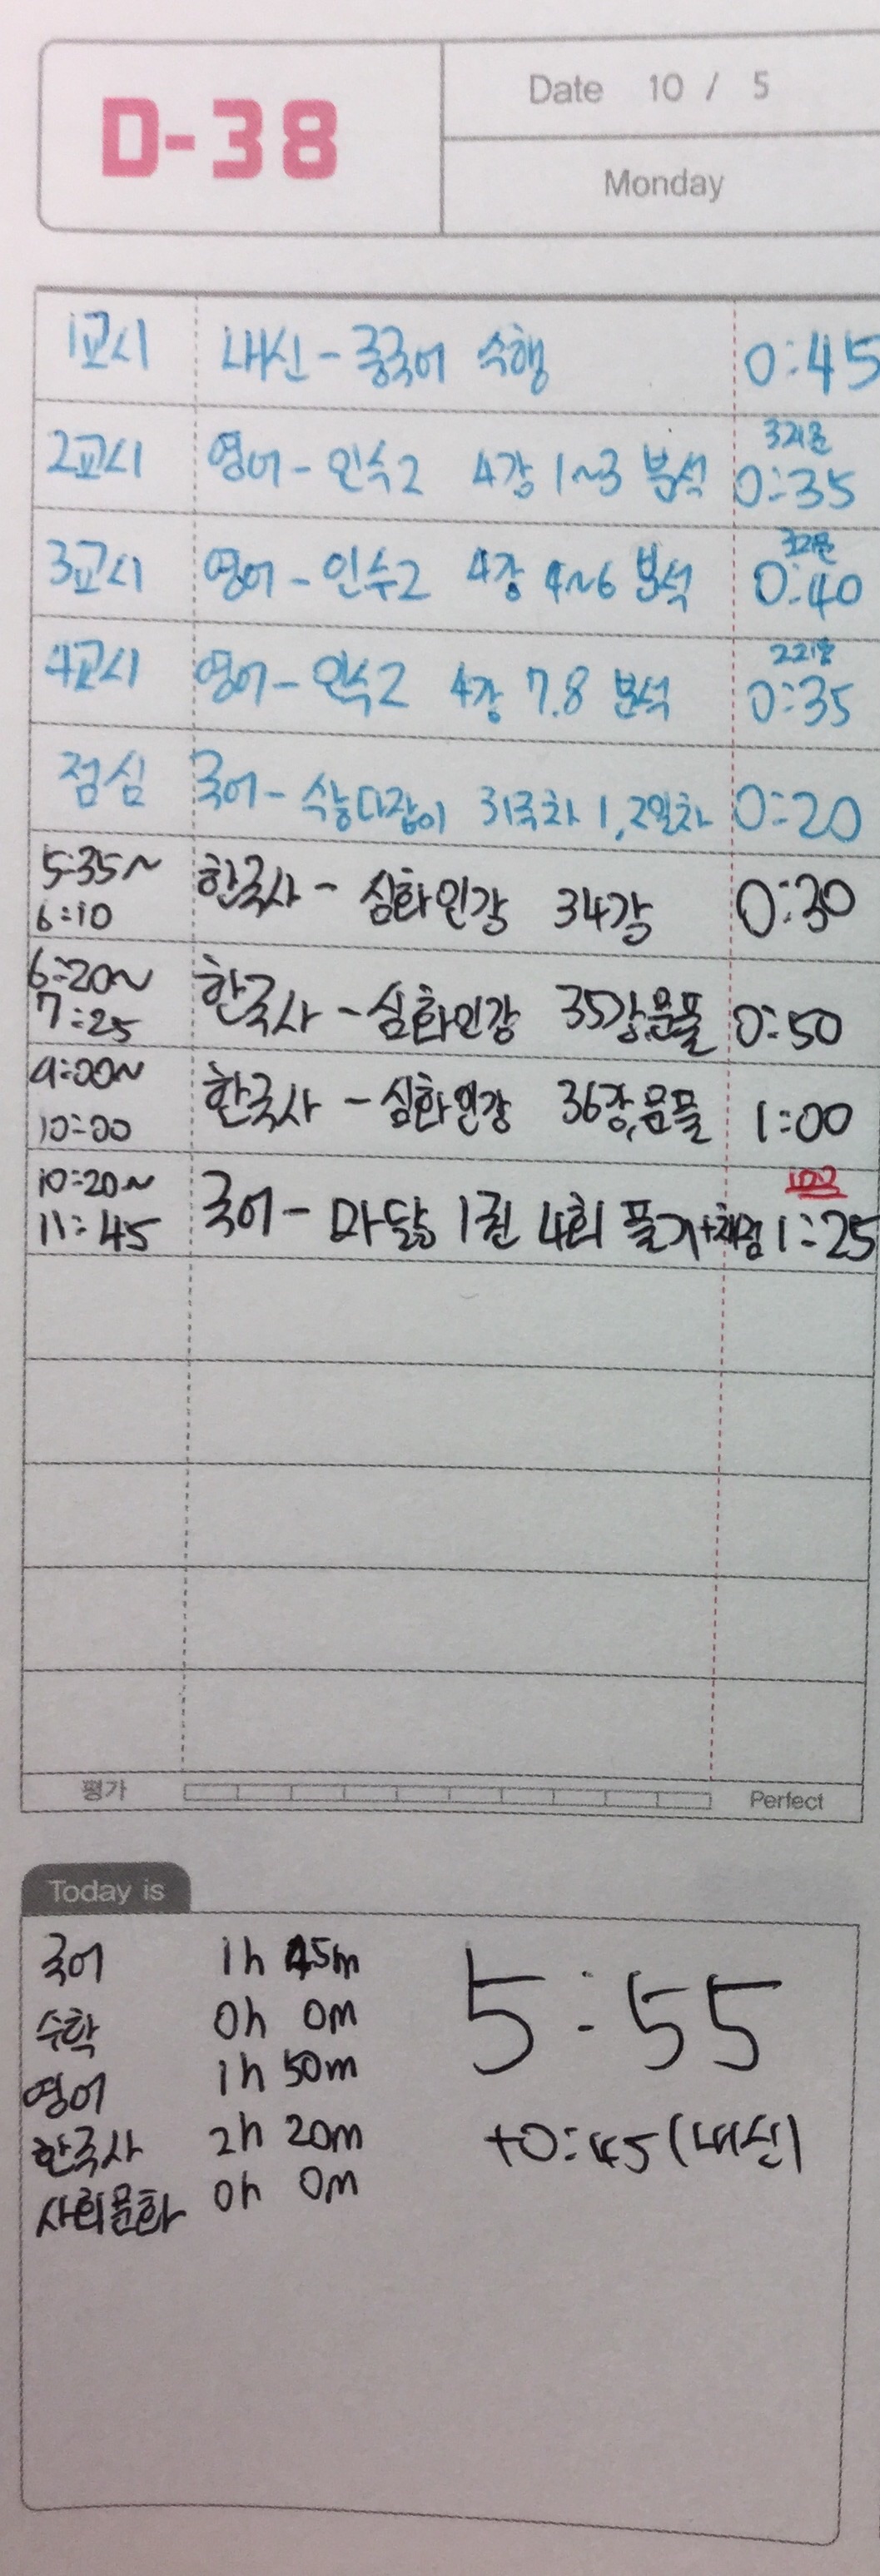 D-38
Date 10 / 5
Monday
1교시 내신 - 중국어 수행 0:45
3지문
2교시 영어 - 인수2 4강 1~3 분석 0:35
3지문
3교시 영어 - 인수2 4강 4~6 분석 0:40
2지문
4교시 영어 - 인수2 4강 7.8 분석 0:35
점심 국어 - 수능다잡이 31주차 1,2일차 0:20
5:35~
6:10 한국사 - 심화인강 34강 0:30
6:20~
7:25 한국사 - 심화인강 35강,문풀 0:50
9:00~
10:00 한국사 - 심화인강 36강,문풀 1:00
10:20~
11:45 국어 - 마닳 1권 4회 풀기+채점 1:25
평가 Perfect
Today is
국어 1h 45m
수학 0h 0m
영어 1h 50m
한국사 2h 20m
사회문화 0h 0m
5:55
+0:45(내신)